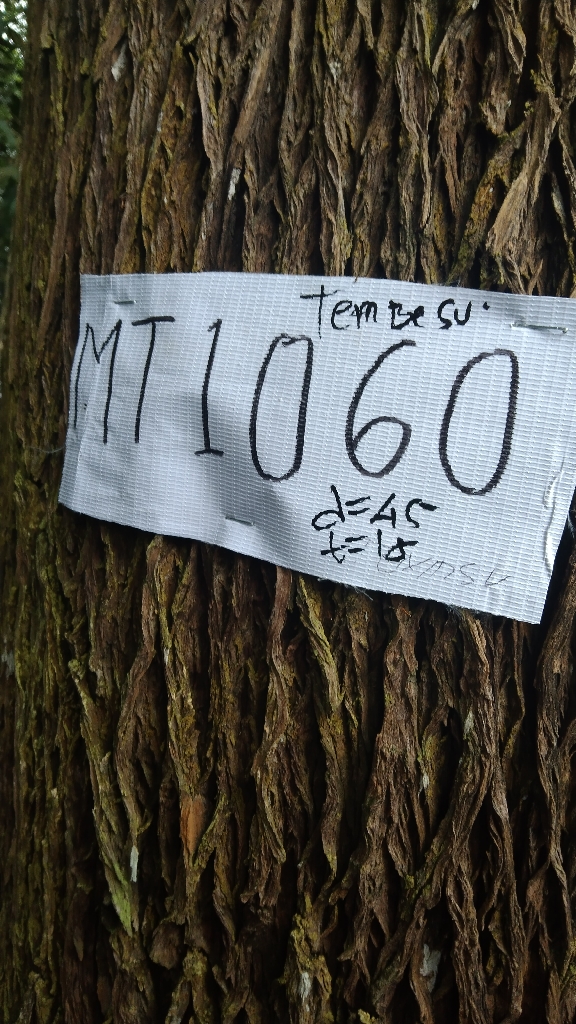 Tembesu.
MT 1060
d=45
t=15